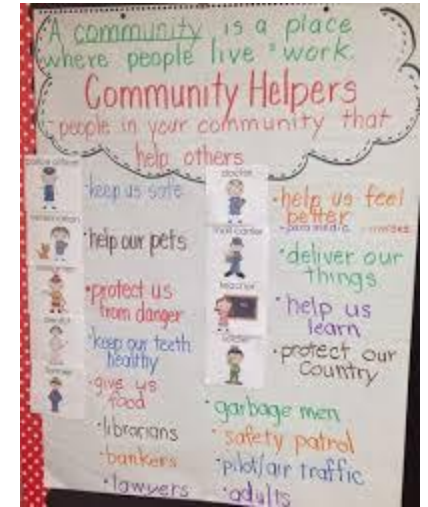 A community is a place
where people live + work.
Community Helpers
people in your community that
help others
police officer
•keep us safe
veterinarian
•help our pets
•protect us
from danger
dentist
•keep our teeth
healthy
farmer
•give us
food
•librarians
•bankers
•lawyers
doctor
•help us feel
better
-paramedic -nurses
mail carrier
•deliver our
things
teacher
•help us
learn
soldier
•protect our
Country
•garbage men
•safety patrol
•pilot/air traffic
•adults